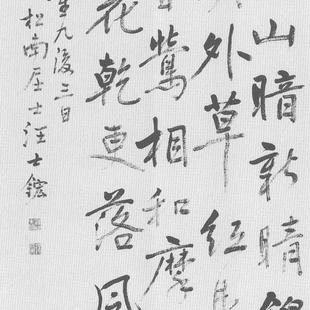 山暗新晴
外草紅
鶯相和摩
花乾更落風
九後三日
松南居士汪士鋐